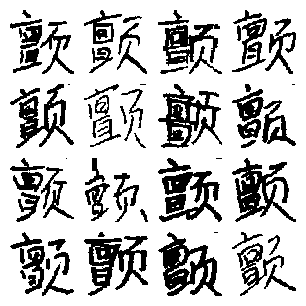 颤颤颤颤
颤颤颤颤
颤颤颤颤
颤颤颤颤